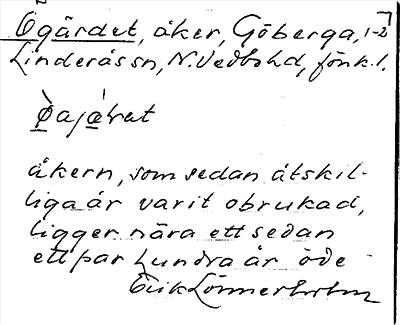 Ögärdet, åker, Göberga, 1-2
Linderås sn, N. Vedbo hd, Jönk. l.
åkern, som sedan åtskil-
liga år varit obrukad,
ligger nära ett sedan
ett par hundra år öde
Erik Lönnerholm